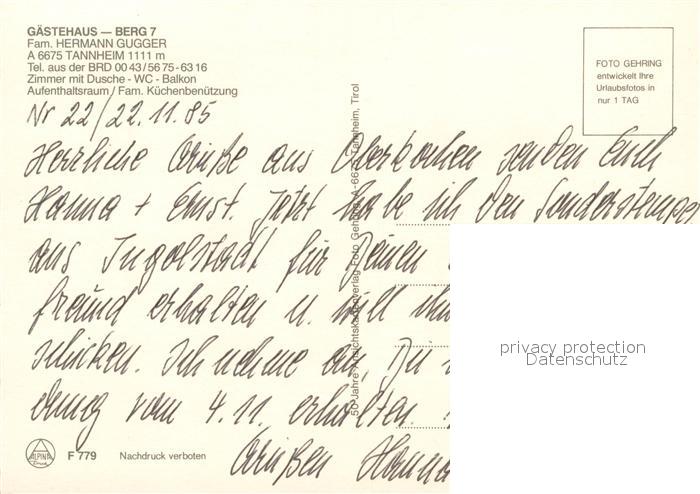 GÄSTEHAUS — BERG 7
Fam. HERMANN GUGGER
A 6675 TANNHEIM 1111 m
Tel. aus der BRD 00 43/56 75-63 16
Zimmer mit Dusche - WC - Balkon
Aufenthaltsraum / Fam. Küchenbenützung
FOTO GEHRING
entwickelt Ihre
Urlaubsfotos in
nur 1 TAG
Nr 22/22.11.85
Herrliche Grüße aus Oberkochen senden Euch
Hanna + Ernst. Jetzt habe ich den Sonderstempel
aus Ingolstadt für Deinen
freund erhalten u. will ihn
schicken. Ich nehme an, Du
dung vom 4.11. erhalten.
Grüßen Hanna
50 Jahre Ansichtskartenverlag Foto Gehring, A-6675 Tannheim, Tirol
privacy protection
Datenschutz
ALPINA
Druck
F 779
Nachdruck verboten